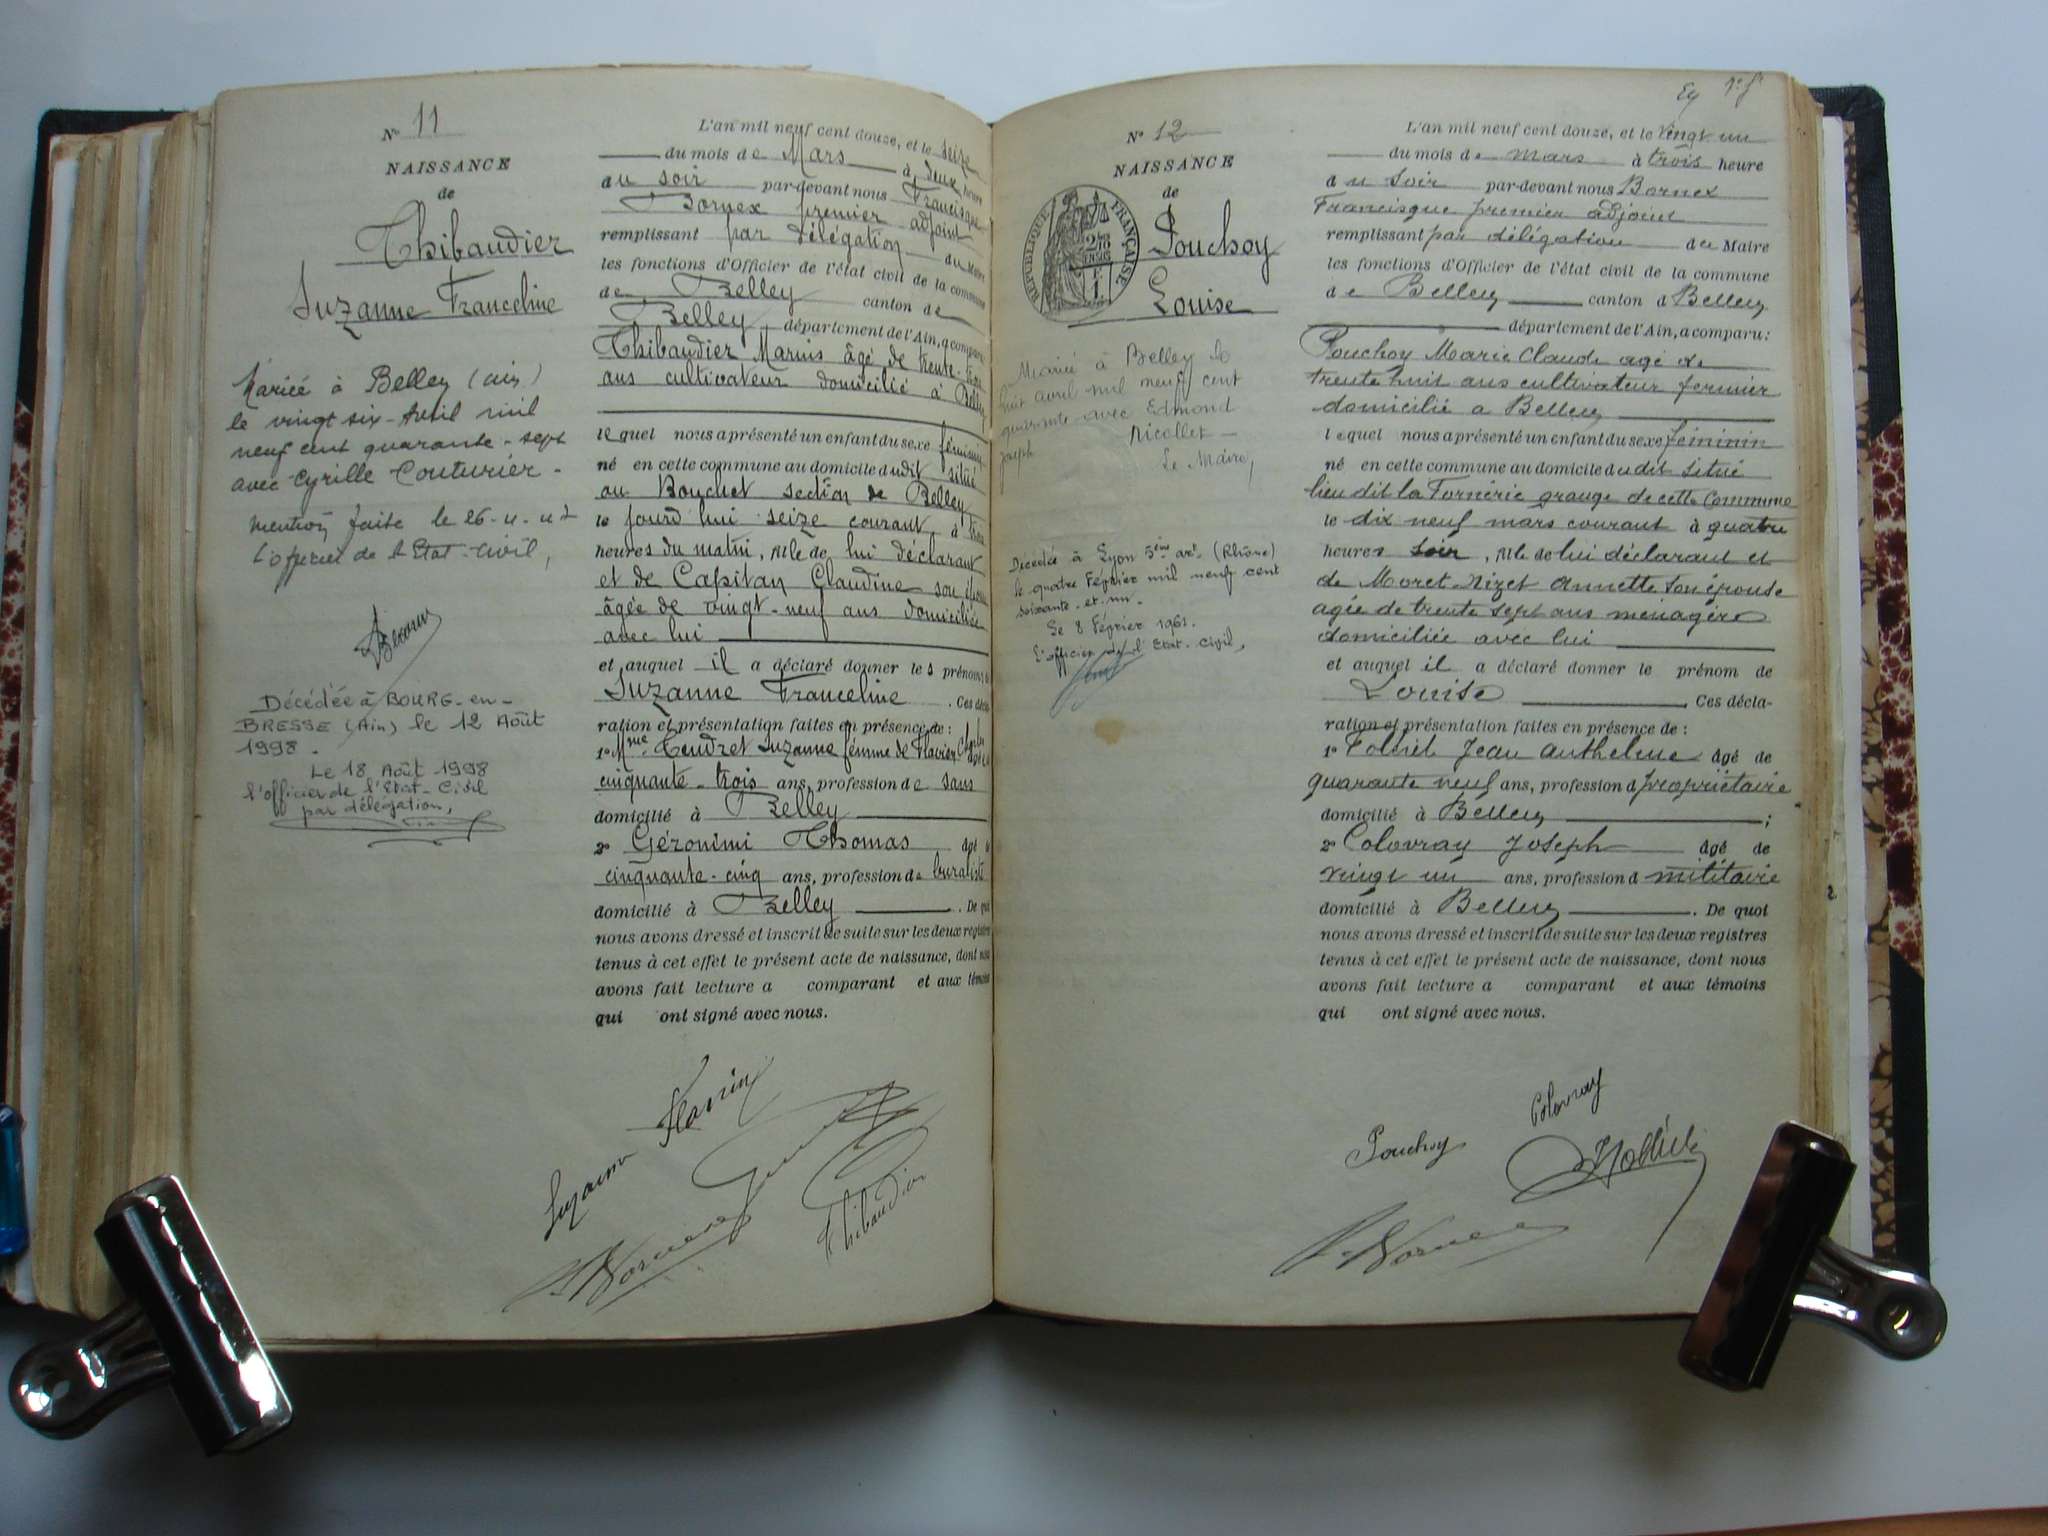 N° 11
NAISSANCE
de
Thibaudier
Suzanne Franceline
Mariée à Belley (ain)
le vingt six - Avril mil
neuf cent quarante - sept
avec Cyrille Couturier -
Mention faite le 26-4-47
L'officier de l'Etat-civil,
Décédée à BOURG-en-
BRESSE (Ain) le 12 Août
1998.
Le 18 Août 1998
l'officier de l'Etat-Civil
par délégation,
L'an mil neuf cent douze, et le seize
du mois de Mars à deux heure
du soir par-devant nous Francisque
Bornex premier adjoint
remplissant par délégation du Maire
les fonctions d'Officier de l'état civil de la commune
de Belley canton de
Belley département de l'Ain, a comparu
Thibaudier Marius âgé de trente-
ans cultivateur domicilié à Belley
lequel nous a présenté un enfant du sexe féminin
né en cette commune au domicile dudit situé
au Bouchet section de Belley
le jourd'hui seize courant à
heures du matin, fille de lui déclarant
et de Capitan Claudine son épouse
âgée de vingt-neuf ans domiciliée
avec lui
et auquel il a déclaré donner les prénoms
Suzanne Franceline . Ces décla
ration et présentation faites en présence de :
1° Mme Tendret Suzanne femme de Flavien Charles
cinquante-trois ans, profession de sans
domicilié à Belley
2° Géronimi Thomas âgé de
cinquante-cinq ans, profession de buraliste
domicilié à Belley . De quoi
nous avons dressé et inscrit de suite sur les deux registres
tenus à cet effet le présent acte de naissance, dont nous
avons fait lecture a comparant et aux témoins
qui ont signé avec nous.
Thibaudier
N° 12
NAISSANCE
de
RÉPUBLIQUE FRANÇAISE
Pouchoy
Louise
Mariée à Belley le
huit avril mil neuf cent
quarante avec Edmond
joseph Nicollet
Le Maire,
Décédée à Lyon 5ème art (Rhône)
le quatre Février mil neuf cent
soixante-et-un-
Le 8 Février 1961.
L'officier de l'Etat-Civil,
L'an mil neuf cent douze, et le vingt un
du mois de mars à trois heure
du soir par-devant nous Bornex
Francisque premier adjoint
remplissant par délégation du Maire
les fonctions d'Officier de l'état civil de la commune
de Belley canton d Belley
département de l'Ain, a comparu :
Pouchoy Marie Claude agé de
trente huit ans cultivateur fermier
domicilié a Belley
lequel nous a présenté un enfant du sexe féminin
né en cette commune au domicile dudit situé
lieu dit la Fornérie grange de cette Commune
le dix neuf mars courant à quatre
heures soir, fille de lui déclarant et
de Moret-Nizet Annette son épouse
agée de trente sept ans menagére
domiciliée avec lui
et auquel il a déclaré donner le prénom de
Louise . Ces décla-
ration et présentation faites en présence de :
1° Jean Anthelme âgé de
quarante neuf ans, profession d propriétaire
domicilié à Belley ;
2° Colovray Joseph âgé de
vingt un ans, profession d militaire
domicilié à Belley . De quoi
nous avons dressé et inscrit de suite sur les deux registres
tenus à cet effet le présent acte de naissance, dont nous
avons fait lecture a comparant et aux témoins
qui ont signé avec nous.
Colovray
Pouchoy